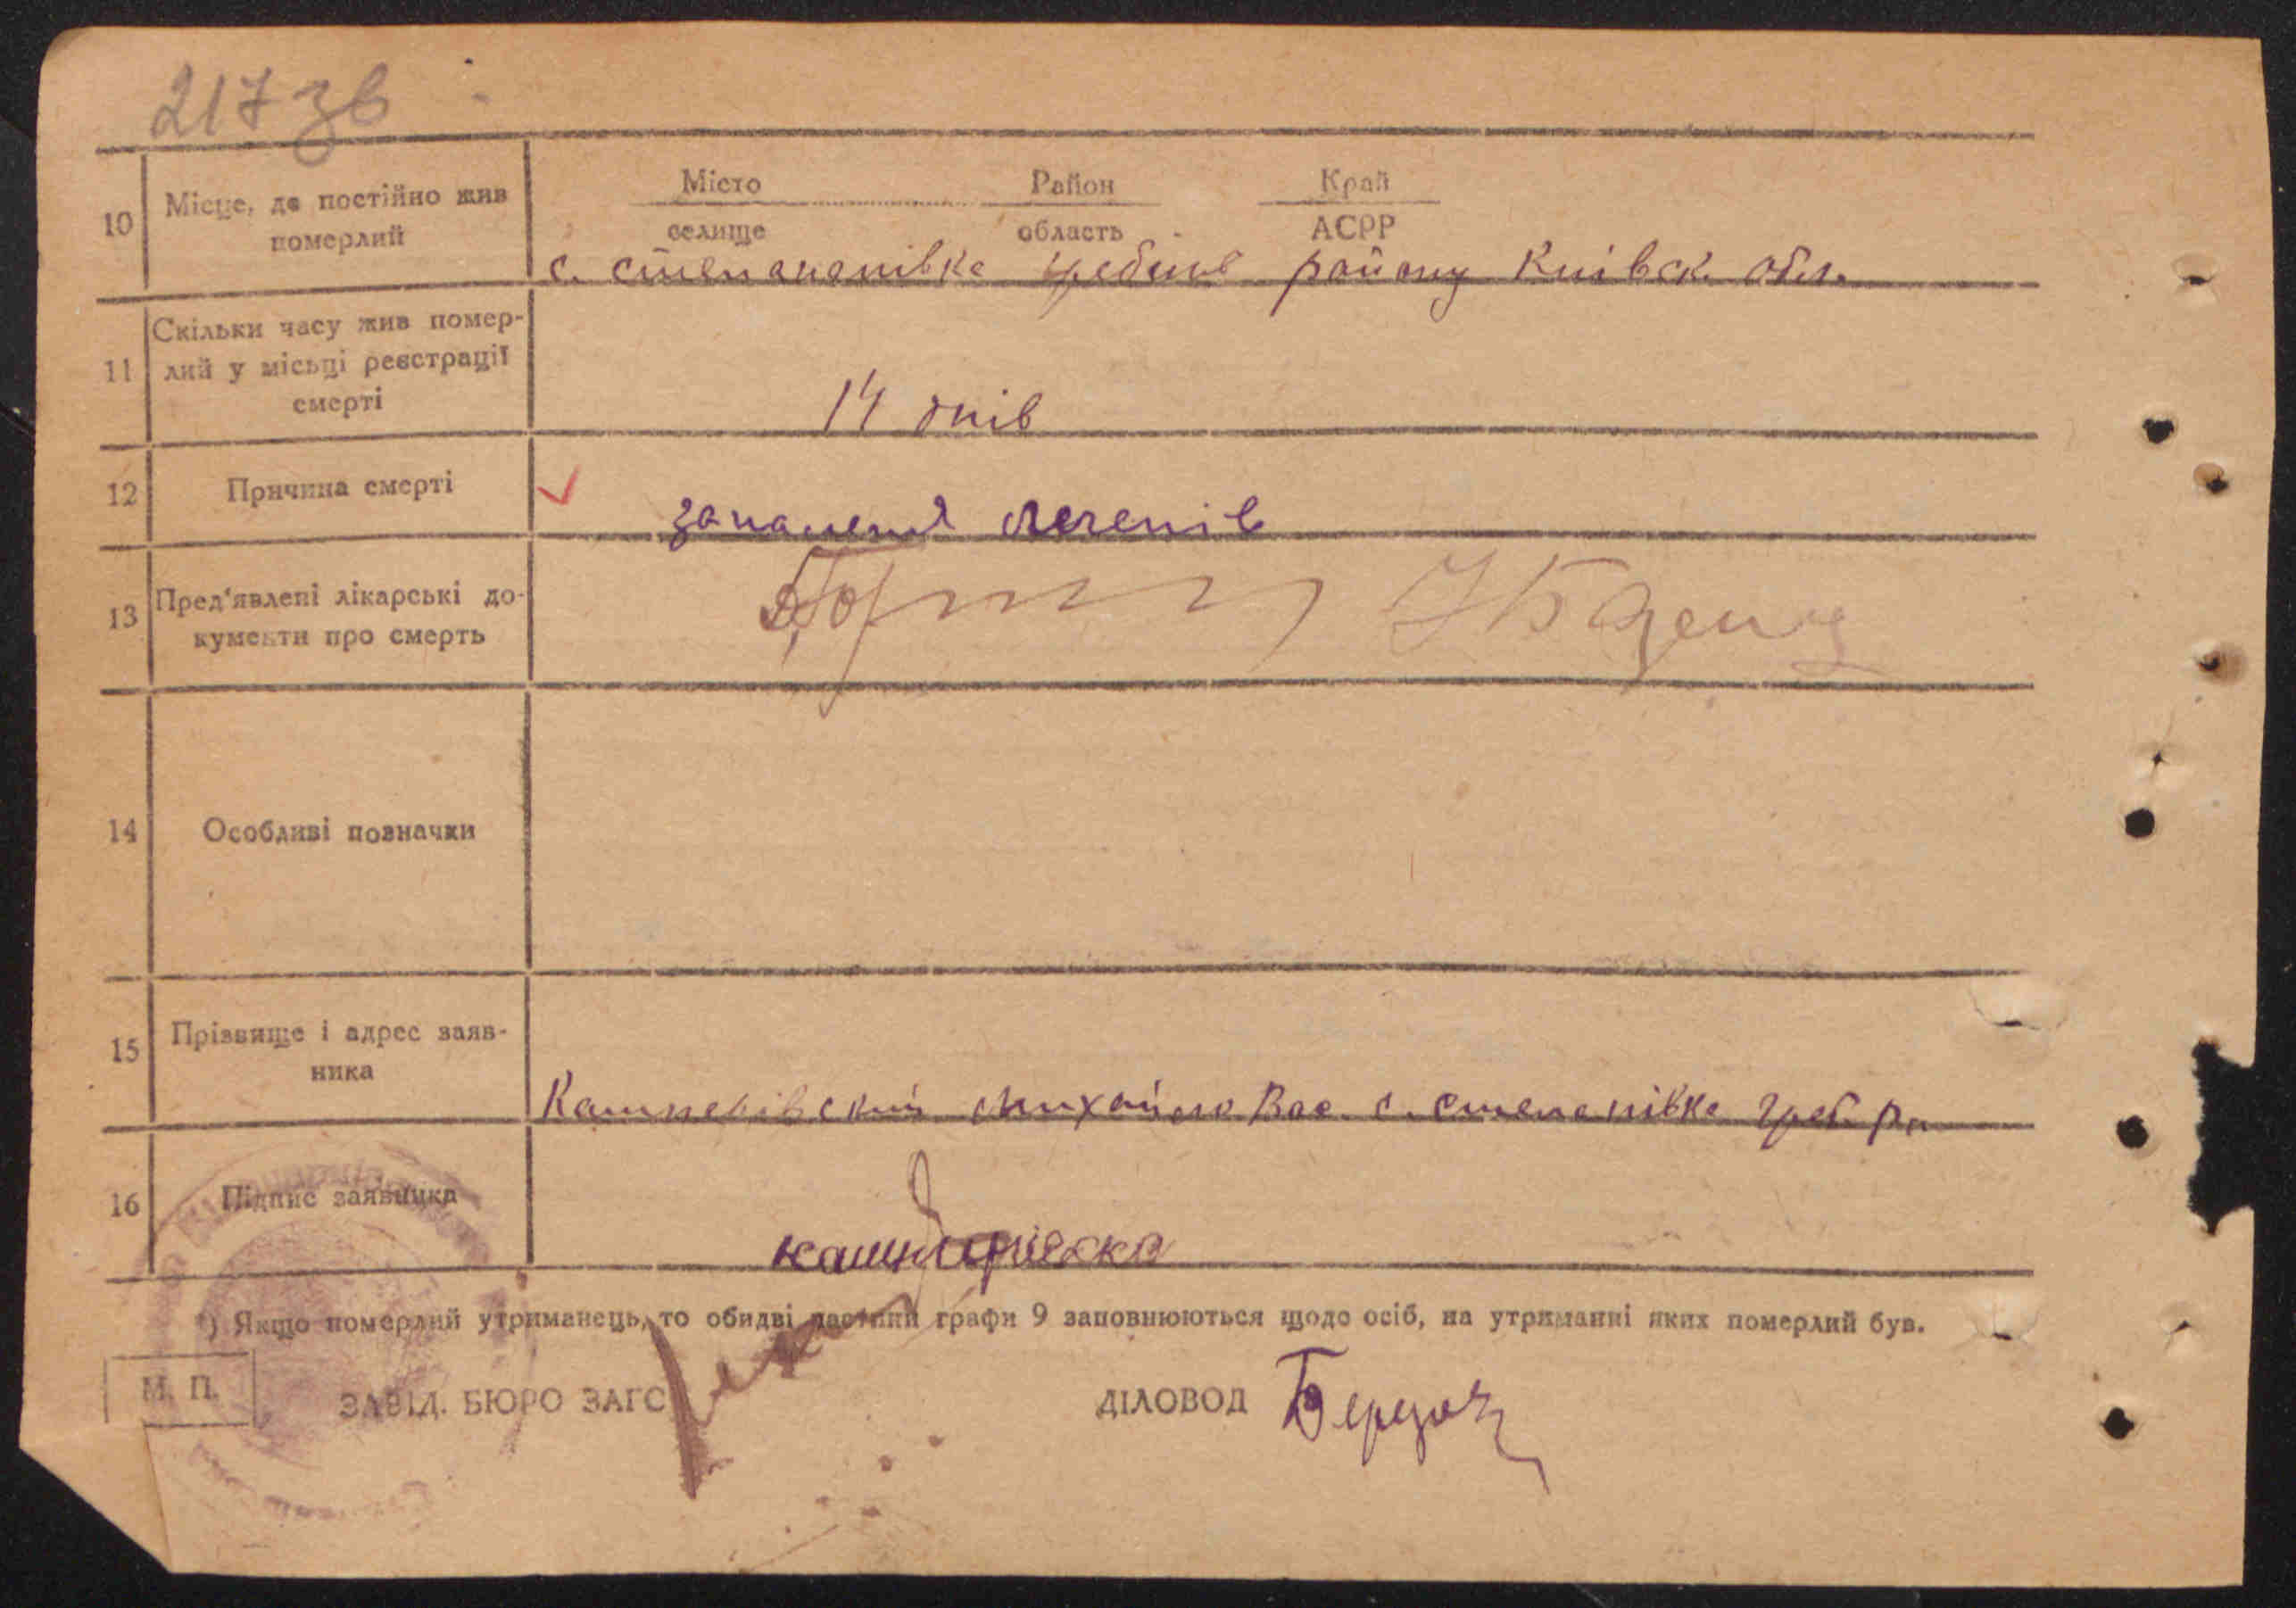 217 зв
Місто Район Край
10 Місце, де постійно жив померлий
селище область АСРР
с. степананівка гребінів району Київск. обл.
11 Скільки часу жив помер-
лий у місьці реєстрації
смерті
14 днів
12 Причина смерті
запаленя легенів
13 Пред'явлені лікарські до-
кументи про смерть
14 Особливі позначки
15 Прізвище і адрес заяв-
ника
михайло Вас. с. степанівка греб. р.
16 Підпис заявника
*) Якщо померлий утриманець, то обидві частини графи 9 заповнюються щодо осіб, на утриманні яких померлий був.
М. П. ЗАВІД. БЮРО ЗАГС ДІЛОВОД